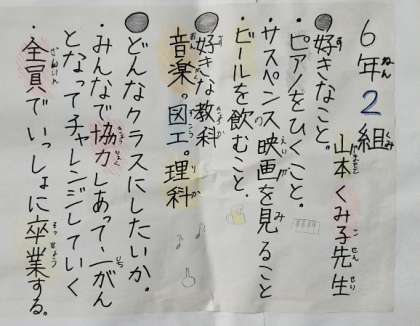 6年2組
山本くみ子先生
●好きなこと。
・ピアノをひくこと。
・サスペンス映画を見ること
・ビールを飲むこと。
●好きな教科
音楽。図工。理科
●どんなクラスにしたいか。
・みんなで協力しあって、一がん
となってチャレンジしていく
・全員でいっしょに卒業する。